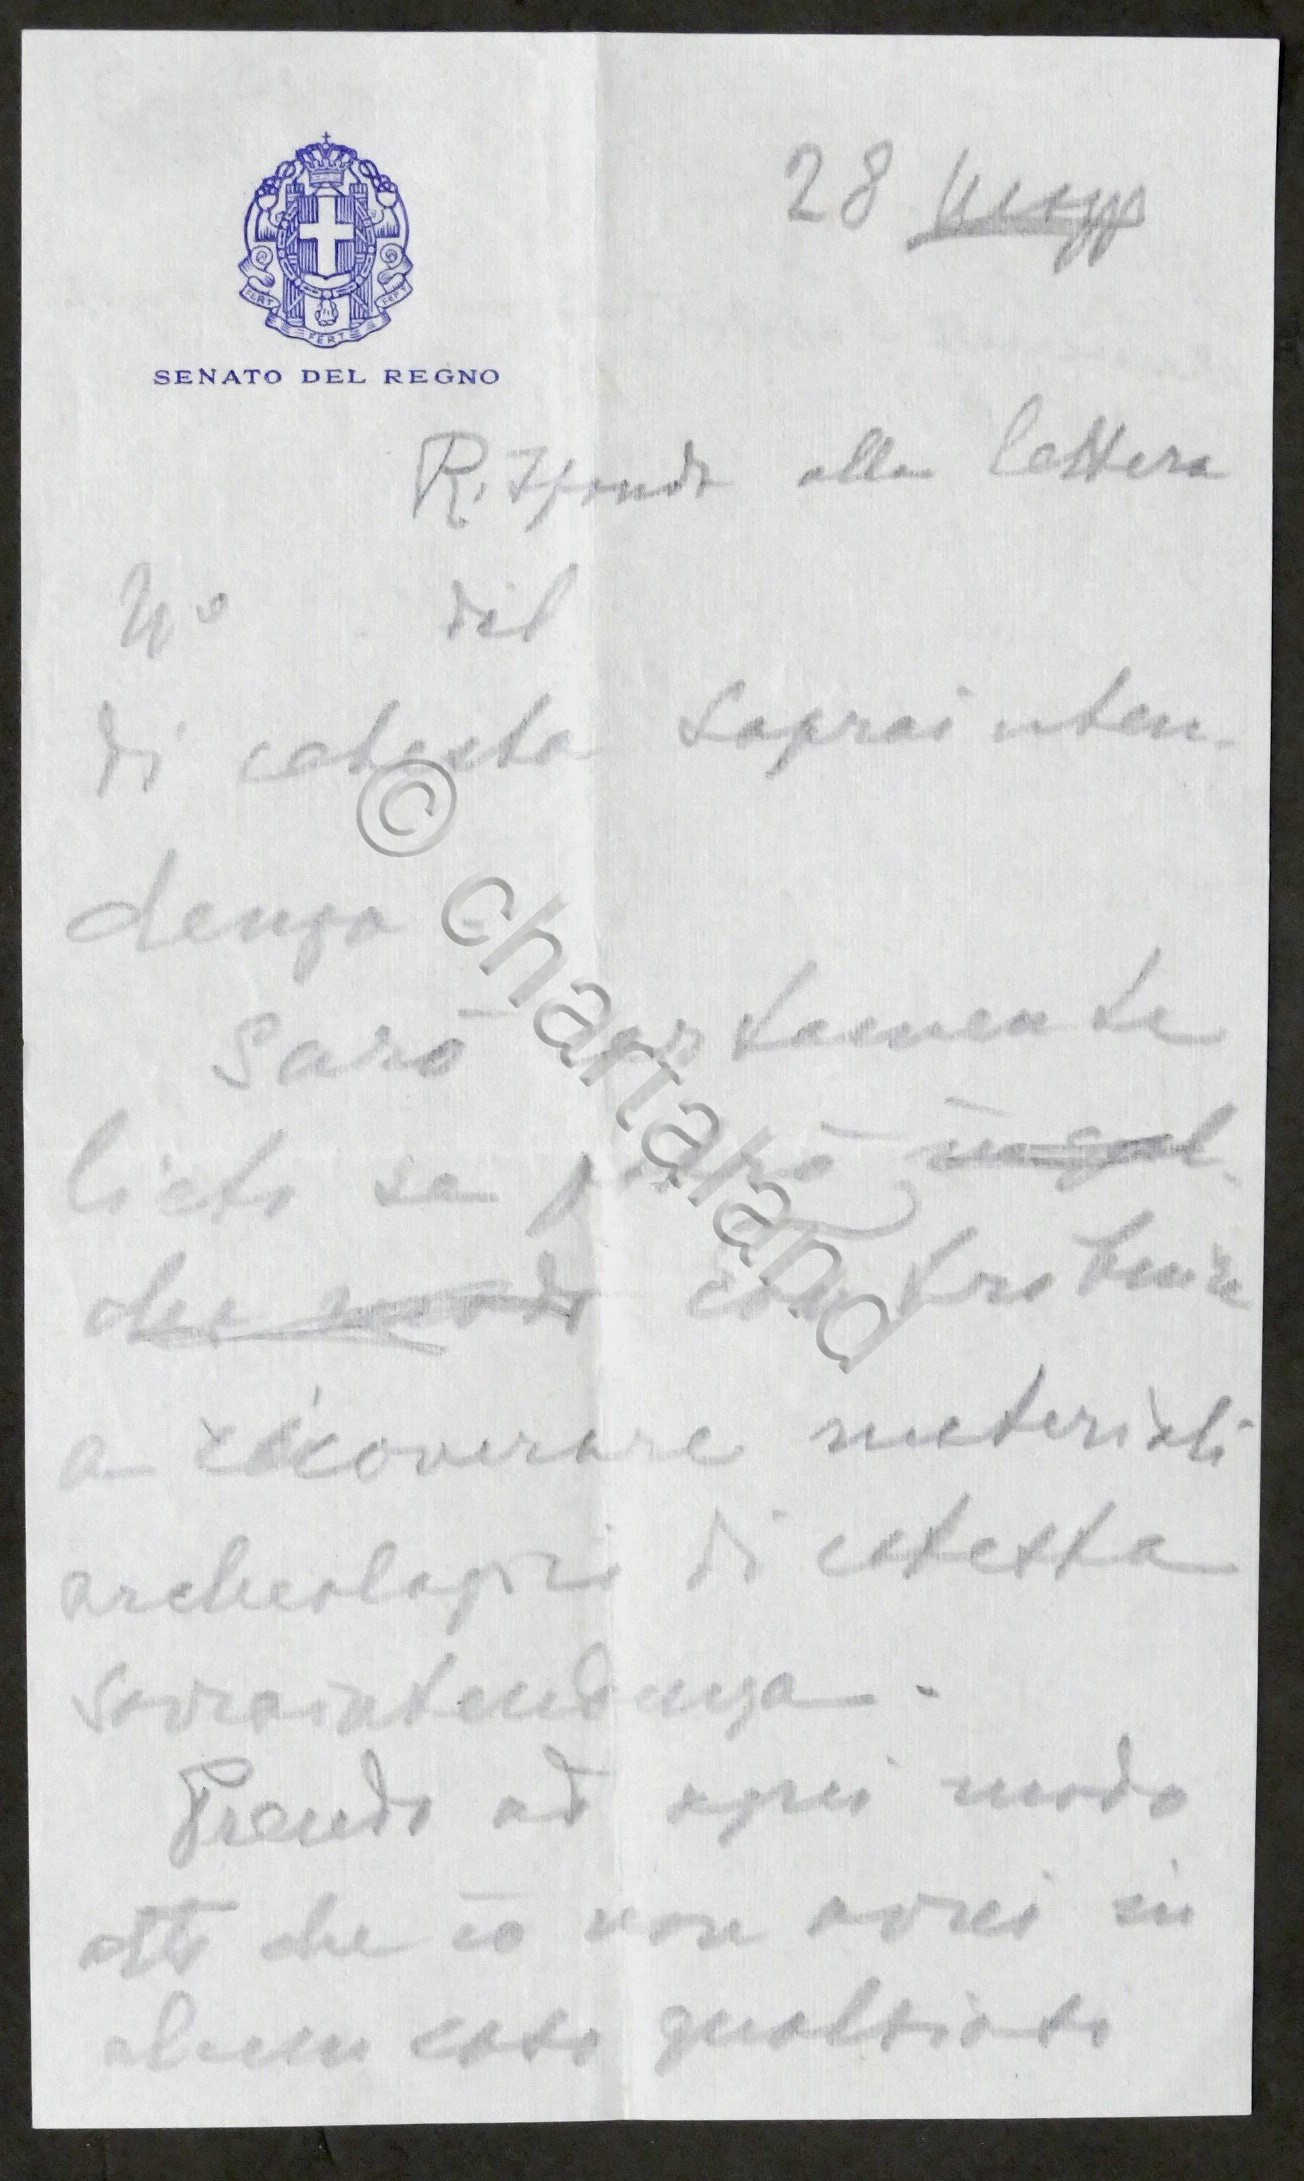 FERT FERT FERT
SENATO DEL REGNO
28 magg
Rispondo alla lettera
N° del
di cotesta soprainten-
denza
Sarò certamente
lieto se potrò in qual-
che modo contribuire
a ricoverare materiali
archeologici di cotesta
sovraintendenza.
Prendo ad ogni modo
atto che io non avrei in
alcun caso qualsiasi
© chartaland